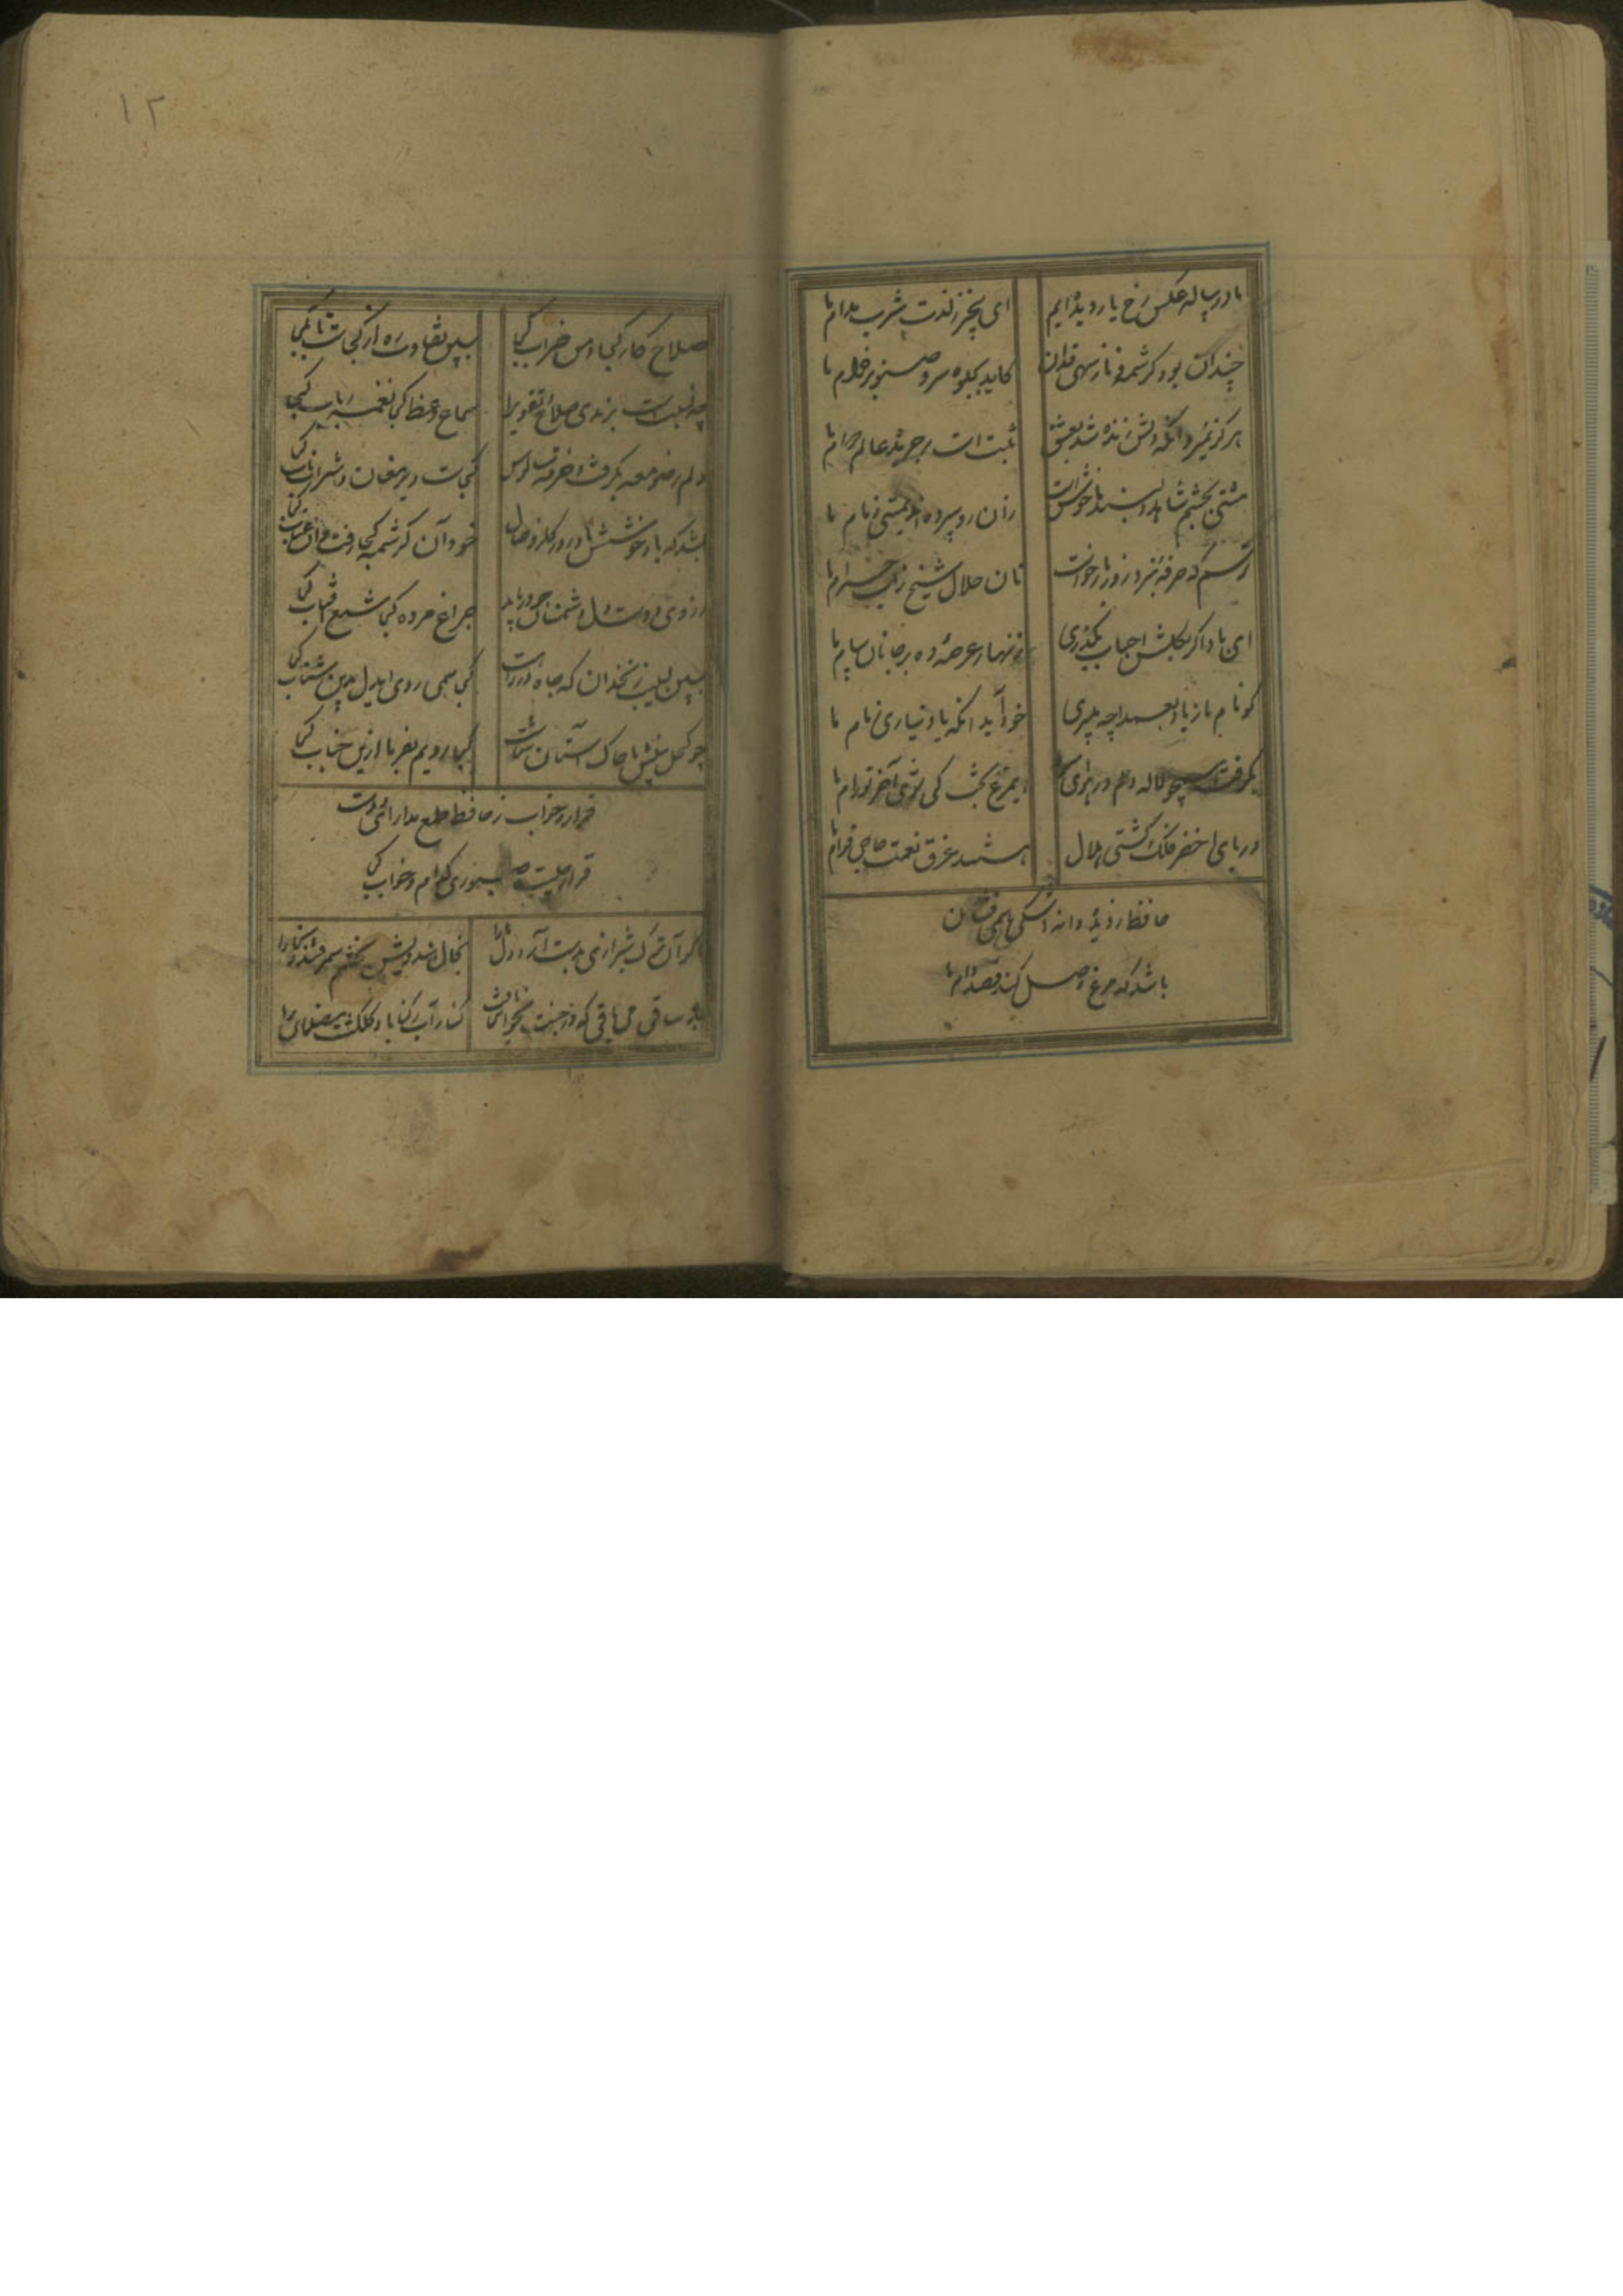 ما در پیاله عکس رخ یار دیده ایم ای بیخبر ز لذت شرب مدام ما
چندان بود کرشمه و ناز سهی قدان کاید بجلوه سرو صنوبر خرام ما
هرگز نمیرد آنکه دلش زنده شد بعشق ثبت است بر جریده عالم دوام ما
مستی بچشم شاهد دلبند ما خوش است زان رو سپرده اند بمستی زمام ما
ترسم که صرفه نبرد روز بازخواست نان حلال شیخ ز آب حرام ما
ای باد اگر بگلشن احباب بگذری زنهار عرضه ده بر جانان پیام ما
کو نام ما ز یاد بعمدا چه میبری خود آید آنکه یاد نیاری ز نام ما
بگرفت همچو لاله دلم در هوای ای مرغ بخت کی شوی آخر تو رام ما
دریای اخضر فلک و کشتی هلال هستند غرق نعمت حاجی قوام ما
حافظ ز دیده دانه اشکی همی فشان
باشد که مرغ وصل کند قصد دام ما
۱۲
صلاح کار کجا و من خراب کجا ببین تفاوت ره از کجاست تا بکجا
چه نسبت است برندی صلاح و تقوی را سماع وعظ کجا نغمه رباب کجا
دلم ز صومعه بگرفت و خرقه سالوس کجاست دیر مغان و شراب ناب کجا
بشد که یاد خوشش باد روزگار وصال خود آن کرشمه کجا رفت و آن عتاب کجا
ز روی دوست دل دشمنان چه دریابد چراغ مرده کجا شمع آفتاب کجا
مبین بسیب زنخدان که چاه در راه است کجا همی روی ای دل بدین شتاب کجا
چو کحل بینش ما خاک آستان شماست کجا رویم بفرما ازین جناب کجا
قرار و خواب ز حافظ طمع مدار ای دوست
قرار چیست صبوری کدام و خواب کجا
اگر آن ترک شیرازی بدست آرد دل ما را بخال هندویش بخشم سمرقند و بخارا را
بده ساقی می باقی که در جنت نخواهی یافت کنار آب رکناباد و گلگشت مصلا را